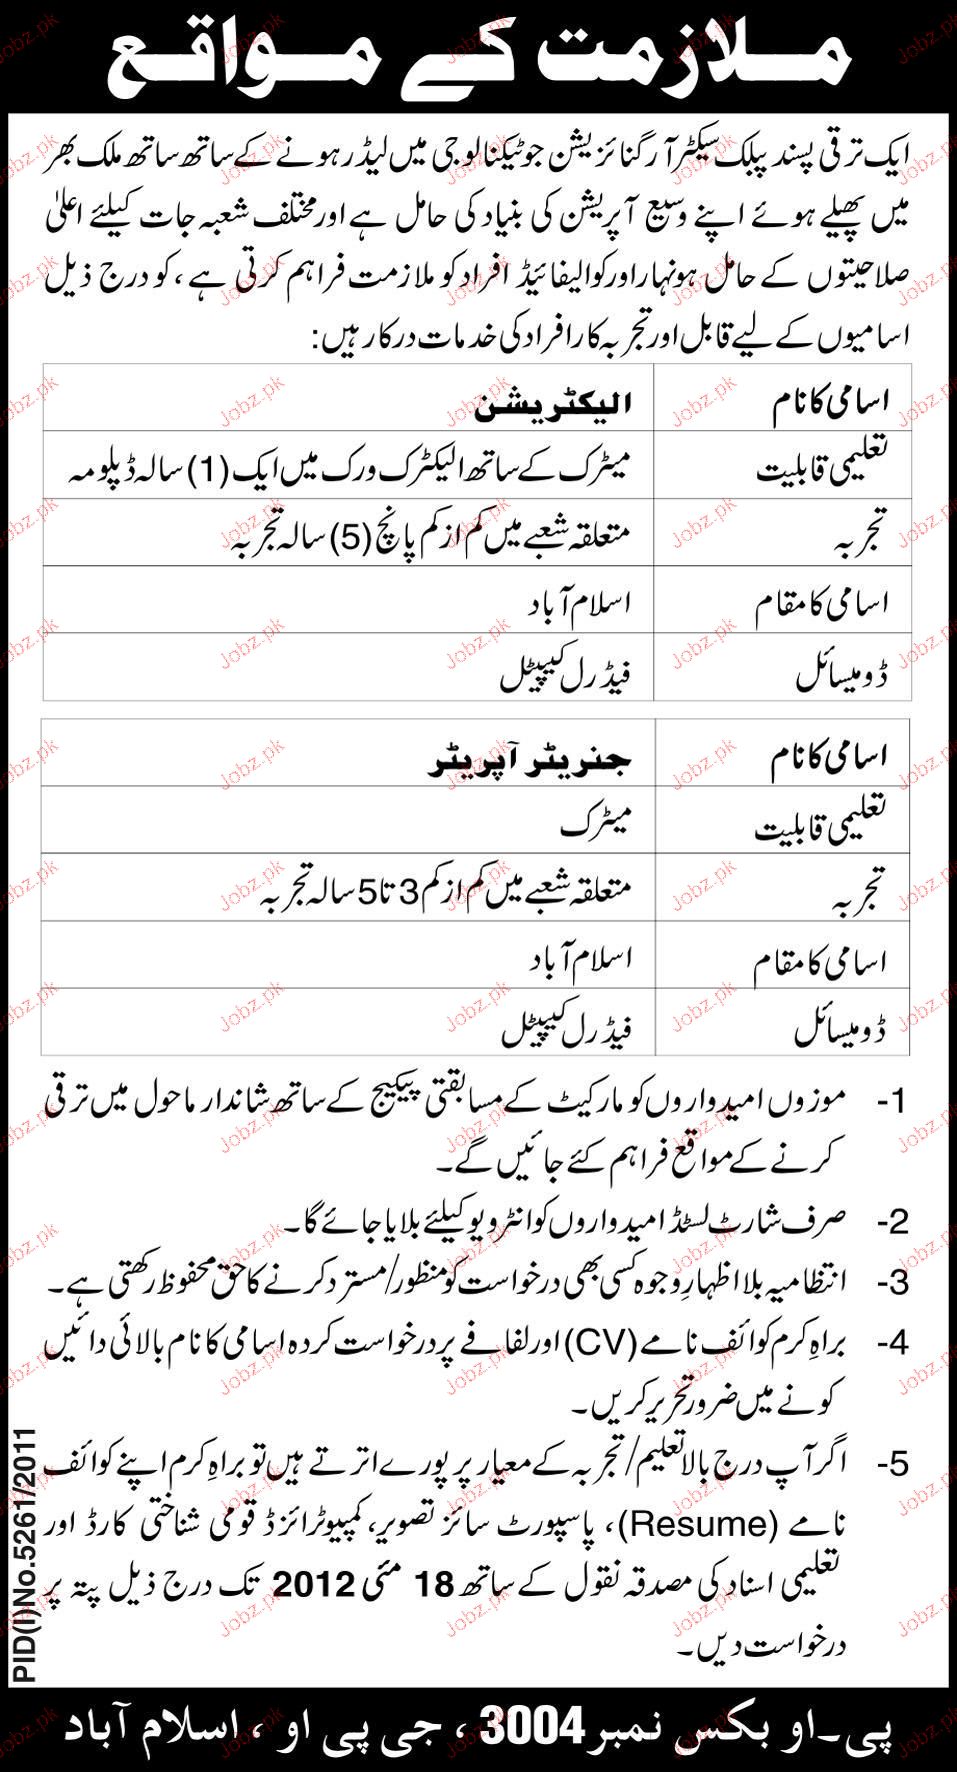 ملازمت کے مواقع
ایک ترقی پسند پبلک سیکٹر آرگنائزیشن جو ٹیکنالوجی میں لیڈر ہونے کے ساتھ ساتھ ملک بھر
میں پھیلے ہوئے اپنے وسیع آپریشن کی بنیاد کی حامل ہے اور مختلف شعبہ جات کیلئے اعلیٰ
صلاحیتوں کے حامل ہونہار اور کوالیفائیڈ افراد کو ملازمت فراہم کرتی ہے، کو درج ذیل
اسامیوں کے لیے قابل اور تجربہ کار افراد کی خدمات درکار ہیں:
اسامی کا نام الیکٹریشن
تعلیمی قابلیت میٹرک کے ساتھ الیکٹرک ورک میں ایک (1) سالہ ڈپلومہ
تجربہ متعلقہ شعبے میں کم از کم پانچ (5) سالہ تجربہ
اسامی کا مقام اسلام آباد
ڈومیسائل فیڈرل کیپیٹل
اسامی کا نام جنریٹر آپریٹر
تعلیمی قابلیت میٹرک
تجربہ متعلقہ شعبے میں کم از کم 3 تا 5 سالہ تجربہ
اسامی کا مقام اسلام آباد
ڈومیسائل فیڈرل کیپیٹل
1- موزوں امیدواروں کو مارکیٹ کے مسابقتی پیکیج کے ساتھ شاندار ماحول میں ترقی
کرنے کے مواقع فراہم کئے جائیں گے۔
2- صرف شارٹ لسٹڈ امیدواروں کو انٹرویو کیلئے بلایا جائے گا۔
3- انتظامیہ بلا اظہارِ وجوہ کسی بھی درخواست کو منظور/مسترد کرنے کا حق محفوظ رکھتی ہے۔
4- براہِ کرم کوائف نامے (CV) اور لفافے پر درخواست کردہ اسامی کا نام بالائی دائیں
کونے میں ضرور تحریر کریں۔
5- اگر آپ درج بالا تعلیم/تجربہ کے معیار پر پورے اترتے ہیں تو براہِ کرم اپنے کوائف
نامے (Resume)، پاسپورٹ سائز تصویر، کمپیوٹرائزڈ قومی شناختی کارڈ اور
تعلیمی اسناد کی مصدقہ نقول کے ساتھ 18 مئی 2012 تک درج ذیل پتہ پر
درخواست دیں۔
PID(I)No.5261/2011
پی۔او بکس نمبر 3004، جی پی او، اسلام آباد
Jobz.pk